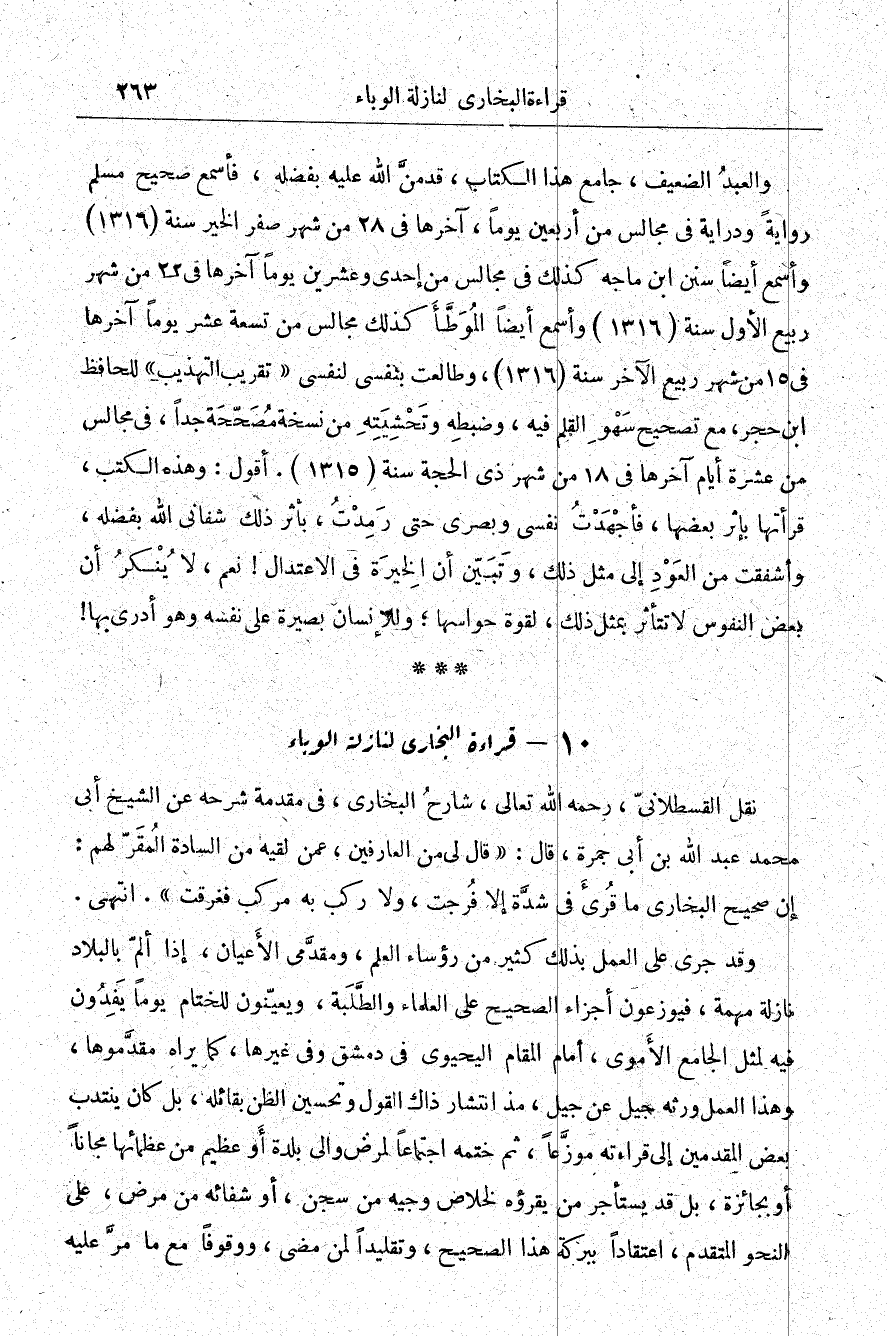 قراءة البخارى لنازلة الوباء ٢٦٣
والعبدُ الضعيف ، جامع هذا الكتاب ، قدمنَّ الله عليه بفضله ، فأسمع صحيح مسلم
روايةً ودراية فى مجالس من أربعين يوماً ، آخرها فى ٢٨ من شهر صفر الخير سنة (١٣١٦)
وأسمع أيضاً سنن ابن ماجه كذلك فى مجالس من إحدى وعشرين يوماً آخرها فى ٢٢ من شهر
ربيع الأول سنة (١٣١٦) وأسمع أيضاً المُوَطَّأَ كذلك مجالس من تسعة عشر يوماً آخرها
فى ١٥ من شهر ربيع الآخر سنة (١٣١٦) ، وطالعت بنفسى لنفسى « تقريب التهذيب » للحافظ
ابن حجر ، مع تصحيح سَهْوِ القلم فيه ، وضبطِه وتَحْشِيَتِهِ من نسخة مُصَحَّحَة جداً ، فى مجالس
من عشرة أيام آخرها فى ١٨ من شهر ذى الحجة سنة (١٣١٥) . أقول : وهذه الكتب ،
قرأتها بإثر بعضها ، فأجْهَدْتُ نفسى وبصرى حتى رَمِدْتُ ، بأثر ذلك شفانى الله بفضله ،
وأشفقت من العَوْدِ إلى مثل ذلك ، وتَبَيّن أن الِخيرَة فى الاعتدال ! نعم ، لا يُنْكَرُ أن
بعض النفوس لا تتأثر بمثل ذلك ، لقوة حواسها ؛ وللإنسان بصيرة على نفسه وهو أدرى بها !
* * *
١٠ — قراءة البخارى لنازلة الوباء
نقل القسطلانىّ ، رحمه الله تعالى ، شارحُ البخارى ، فى مقدمة شرحه عن الشيخ أبى
محمد عبد الله بن أبى جمرة ، قال : « قال لى من العارفين ، عمن لقيه من السادة المُقَرّ لهم :
إن صحيح البخارى ما قُرِئَ فى شدَّة إلا فُرجت ، ولا ركب به مركب فغرقت » . انتهى .
وقد جرى على العمل بذلك كثير من رؤساء العلم ، ومقدَّمى الأَعيان ، إذا ألمّ بالبلاد
نازلة مهمة ، فيوزعون أجزاء الصحيح على العلماء والطَّلَبة ، ويعيّنون للختام يوماً يَفِدُون
فيه لمثل الجامع الأَموى ، أمام المقام اليحيوى فى دمشق وفى غيرها ، كما يراه مقدَّموها ،
وهذا العمل ورثه جيل عن جيل ، مذ انتشار ذاك القول وتحسين الظن بقائله ، بل كان ينتدب
بعض المقدمين إلى قراءته موزَّعاً ، ثم ختمه اجتماعاً لمرض والى بلدة أَو عظيم من عظمائها مجاناً
أو بجائزة ، بل قد يستأجر من يقرؤه لخلاص وجيه من سجن ، أو شفائه من مرض ، على
النحو المتقدم ، اعتقاداً ببركة هذا الصحيح ، وتقليداً لمن مضى ، ووقوفاً مع ما مرَّ عليه